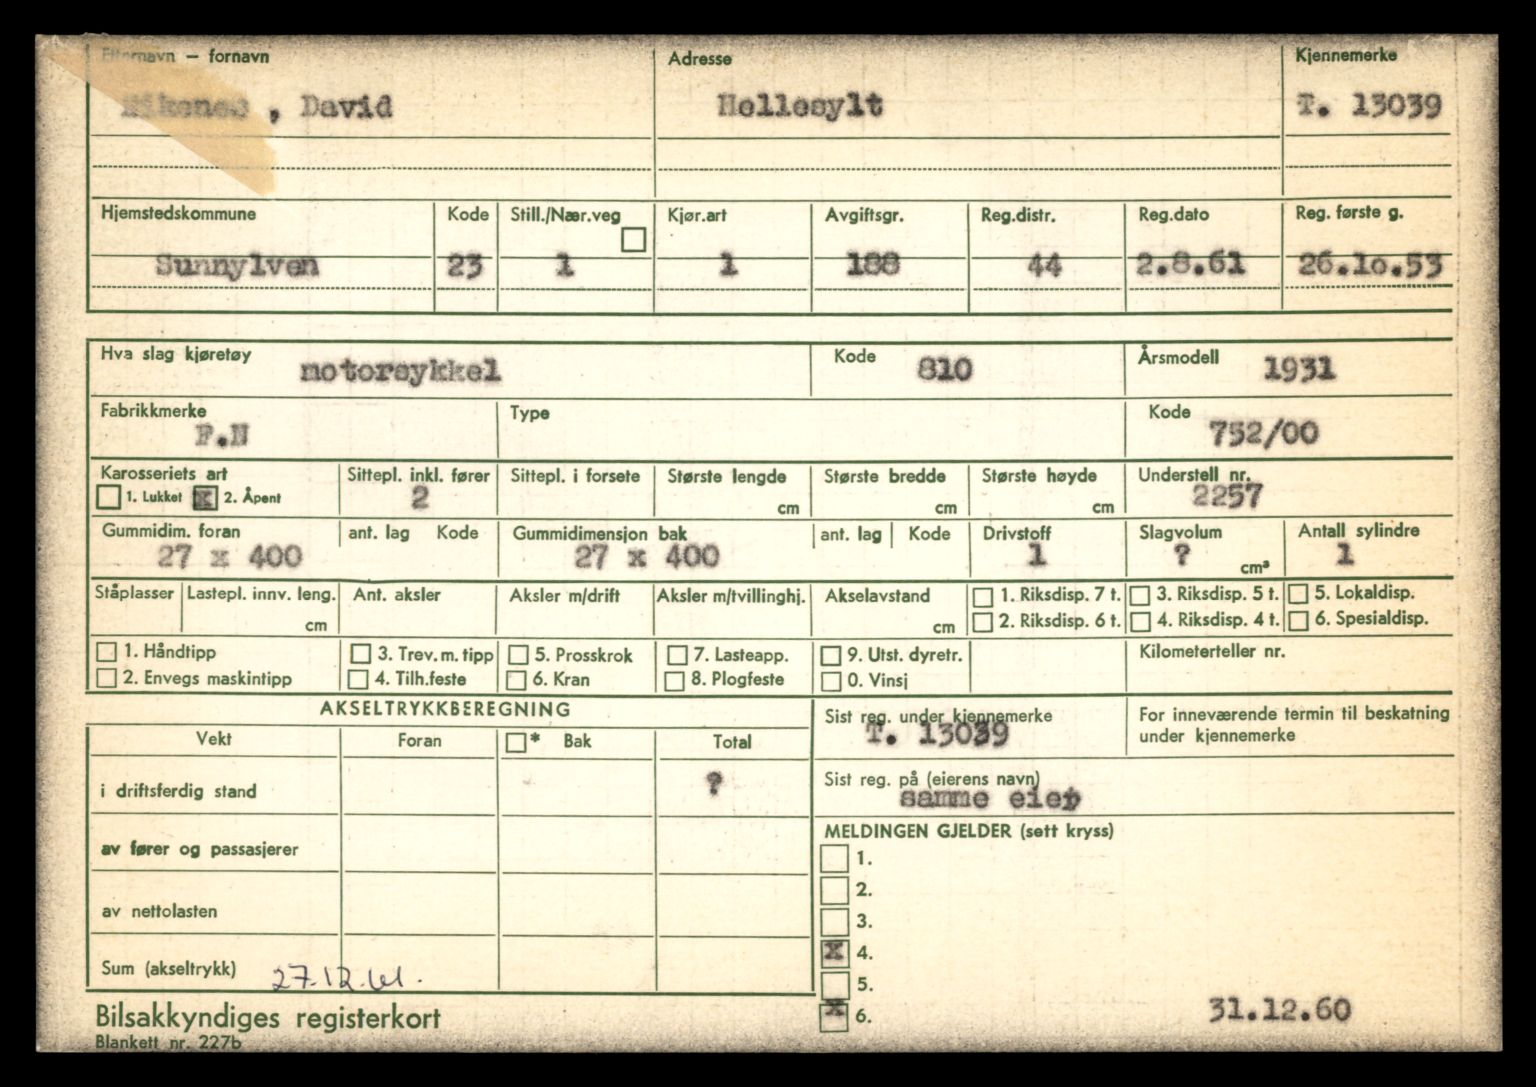 Etternavn – fornavn Adresse Kjennemerke
, David Hellesylt T. 13039
Hjemstedskommune Kode Still./Nær.veg Kjør.art Avgiftsgr. Reg.distr. Reg.dato Reg. første g.
Sunnylven 23 1 1 188 44 2.8.61 26.10.53
Hva slag kjøretøy motorsykkel Kode 810 Årsmodell 1931
Fabrikkmerke F.N Type Kode 752/00
Karosseriets art Sittepl. inkl. fører Sittepl. i forsete Største lengde Største bredde Største høyde Understell nr.
1. Lukket x 2. Åpent 2 cm cm cm 2257
Gummidim. foran ant. lag Kode Gummidimensjon bak ant. lag Kode Drivstoff Slagvolum Antall sylindre
27 x 400 27 x 400 1 ? cm³ 1
Ståplasser Lastepl. innv. leng. Ant. aksler Aksler m/drift Aksler m/tvillinghj. Akselavstand 1. Riksdisp. 7 t. 3. Riksdisp. 5 t. 5. Lokaldisp.
cm cm 2. Riksdisp. 6 t. 4. Riksdisp. 4 t. 6. Spesialdisp.
1. Håndtipp 3. Trev. m. tipp 5. Prosskrok 7. Lasteapp. 9. Utst. dyretr. Kilometerteller nr.
2. Envegs maskintipp 4. Tilh.feste 6. Kran 8. Plogfeste 0. Vinsj
AKSELTRYKKBEREGNING
Vekt Foran * Bak Total
i driftsferdig stand ?
av fører og passasjerer
av nettolasten
Sum (akseltrykk) 27.12.61.
Sist reg. under kjennemerke
T. 13039
For inneværende termin til beskatning
under kjennemerke
Sist reg. på (eierens navn)
samme eier
MELDINGEN GJELDER (sett kryss)
1.
2.
3.
x 4.
5.
x 6.
31.12.60
Bilsakkyndiges registerkort
Blankett nr. 227b